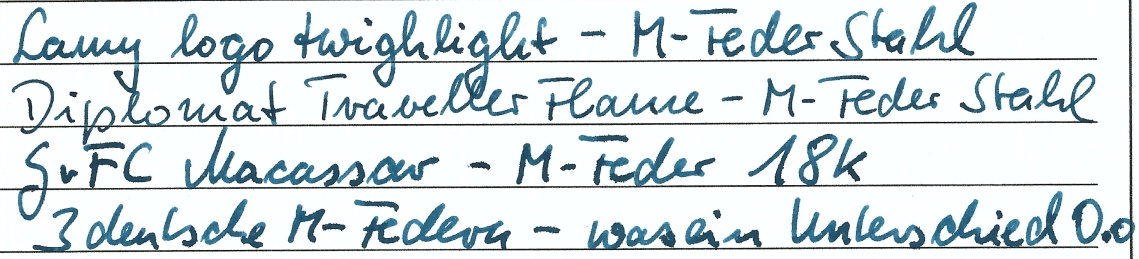 Lamy logo twighlight - M-Feder Stahl
Diplomat Traveller Flame - M-Feder Stahl
GvFC Macassar - M-Feder 18k
3 deutsche M-Federn - was ein Unterschied O.o